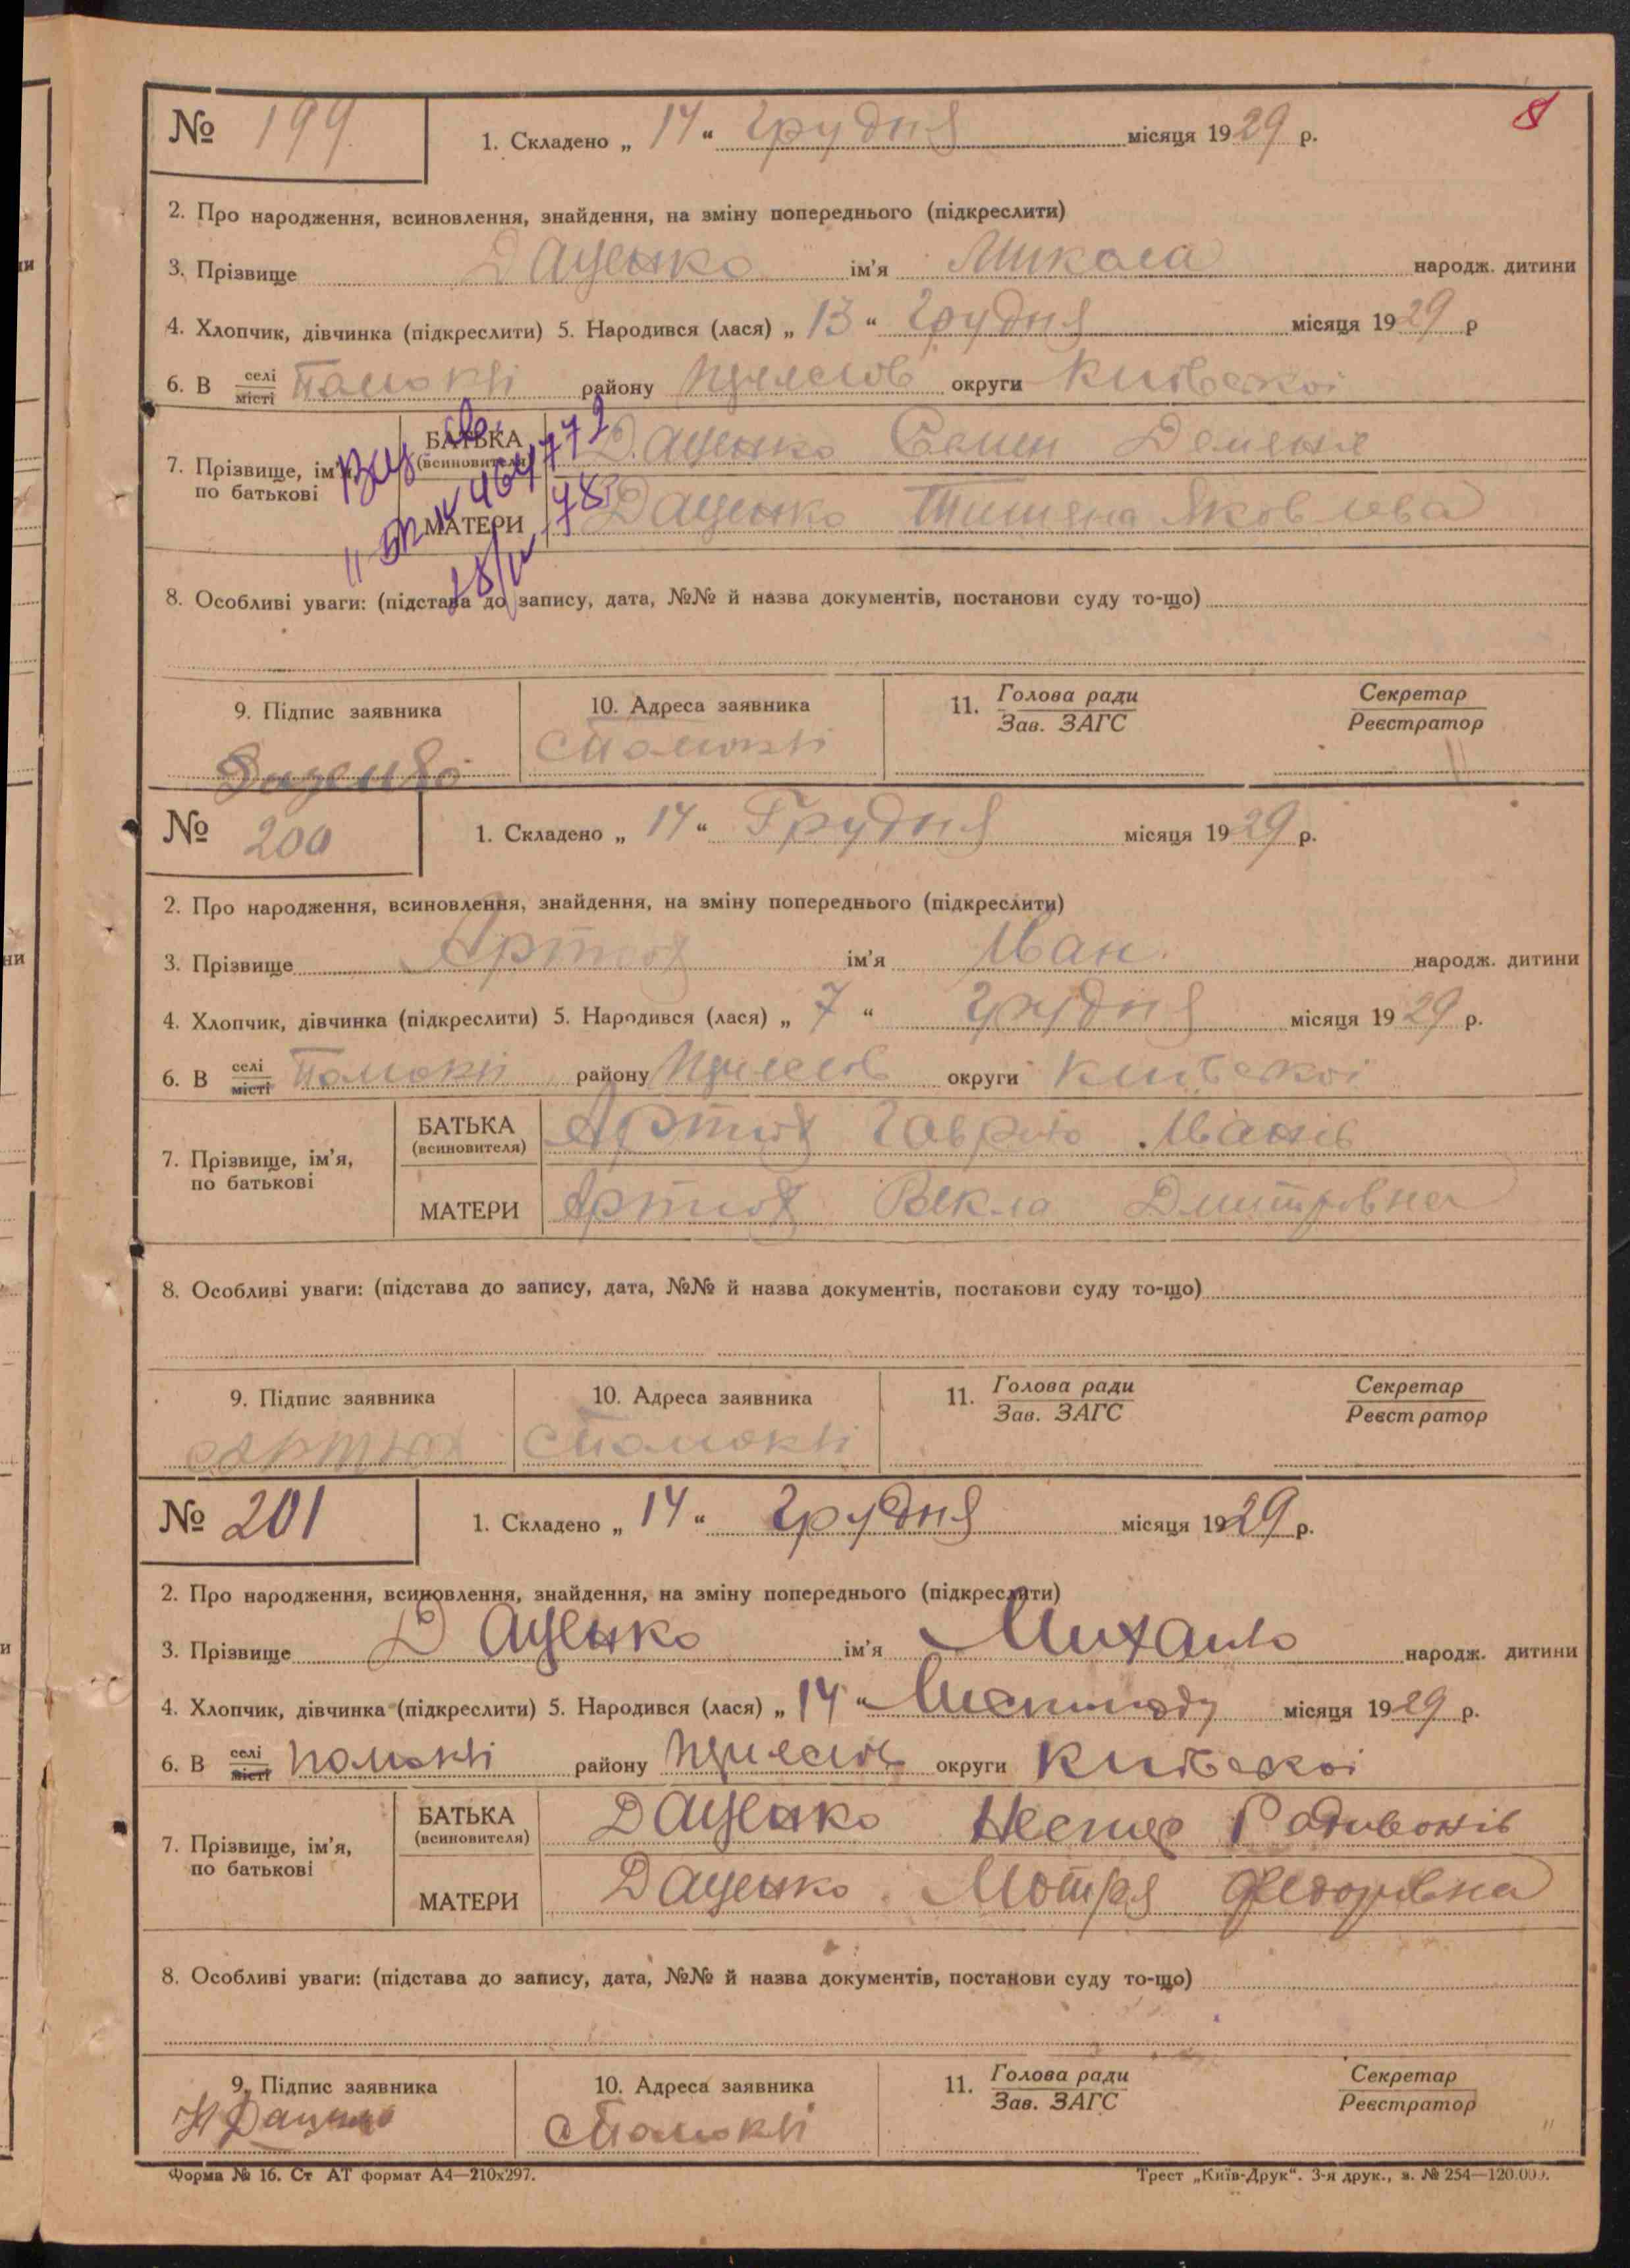 8
№ 199 1. Складено „ 14 “ грудня місяця 1929 р.
2. Про народження, всиновлення, знайдення, на зміну попереднього (підкреслити)
3. Прізвище Даценко ім’я Микола народж. дитини
4. Хлопчик, дівчинка (підкреслити) 5. Народився (лася) „ 13 “ грудня місяця 1929 р
6. В селі місті Помоклі району округи Київської
7. Прізвище, ім’я, по батькові
БАТЬКА (всиновителя) Даценко Семен
МАТЕРИ Даценко Титяна Яковлева
8. Особливі уваги: (підстава до запису, дата, №№ й назва документів, постанови суду то-що)
9. Підпис заявника 10. Адреса заявника 11. Голова ради Зав. ЗАГС Секретар Реєстратор
Даценко с Помоклі
№ 200 1. Складено „ 14 “ Грудня місяця 1929 р.
2. Про народження, всиновлення, знайдення, на зміну попереднього (підкреслити)
3. Прізвище Артюх ім’я Іван народж. дитини
4. Хлопчик, дівчинка (підкреслити) 5. Народився (лася) „ 7 “ грудня місяця 1929 р.
6. В селі місті Помоклі району округи Київської
7. Прізвище, ім’я, по батькові
БАТЬКА (всиновителя) Артюх Гаврило Іванів
МАТЕРИ Артюх Векла Дмитровна
8. Особливі уваги: (підстава до запису, дата, №№ й назва документів, постанови суду то-що)
9. Підпис заявника 10. Адреса заявника 11. Голова ради Зав. ЗАГС Секретар Реєстратор
Артюх с Помоклі
№ 201 1. Складено „ 14 “ грудня місяця 1929 р.
2. Про народження, всиновлення, знайдення, на зміну попереднього (підкреслити)
3. Прізвище Даценко ім’я Михаило народж. дитини
4. Хлопчик, дівчинка (підкреслити) 5. Народився (лася) „ 14 “ Листопаду місяця 1929 р.
6. В селі місті Помоклі району округи Київської
7. Прізвище, ім’я, по батькові
БАТЬКА (всиновителя) Даценко Нестер Родивонів
МАТЕРИ Даценко Мотря Федоровна
8. Особливі уваги: (підстава до запису, дата, №№ й назва документів, постанови суду то-що)
9. Підпис заявника 10. Адреса заявника 11. Голова ради Зав. ЗАГС Секретар Реєстратор
Н Даценко с Помоклі
Форма № 16. Ст АТ формат А4—210х297. Трест „Київ-Друк“. 3-я друк., з. № 254—120.000.